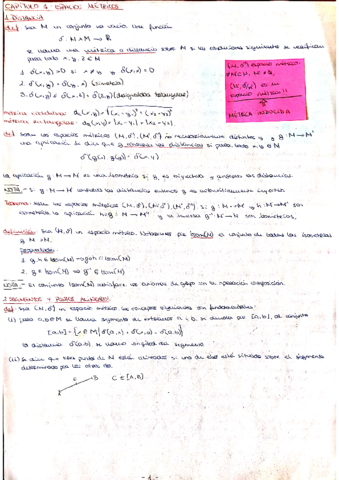 CAPÍTULO 1: ESPACIOS MÉTRICOS
1. DISTANCIA
def Sea M un conjunto no vacío. Una función
d: M×M → R
se llama una métrica o distancia sobre M si las condiciones siguientes se verifican
para todo x, y, z ∈ M
1. d(x,y)>0 si x ≠ y, d(x,x)=0
2. d(x,y) = d(y,x) (simetría)
3. d(x,y) ≤ d(x,z) + d(z,y) (desigualdad triangular)
(M,d) espacio métrico.
N⊂M, N ≠ ∅
espacio métrico
MÉTRICA INDUCIDA
métrica euclídea:
def Sean los espacios métricos (M,d), (M',d') no necesariamente distintos y g: M→M'
una aplicación. Se dice que g conserva las distancias si para todo x, y ∈ M
d'(g(x), g(y)) = d(x,y)
La aplicación g: M→M' es una isometría si g es biyectiva y conserva las distancias.
NOTA - Si g: M→M' conserva las distancias entonces g es automáticamente inyectiva
Teorema Sean los espacios métricos (M,d), (M',d'), (M'',d''). Si g: M→M' y h: M'→M'' son
isometrías la aplicación h∘g: M→M'' y la inversa g⁻¹: M'→M son isometrías.
definición Sea (M,d) un espacio métrico. Denotaremos por Isom(M) el conjunto de todas las isometrías
g: M→M.
Propiedades
1. g, h ∈ Isom(M) → g∘h ∈ Isom(M)
2. g ∈ Isom(M) → g⁻¹ ∈ Isom(M)
NOTA - El conjunto Isom(M) satisface los axiomas de grupo con la operación composición.
2. SEGMENTOS Y PUNTOS ALINEADOS
def Sea (M,d) un espacio métrico los conceptos siguientes son fundamentales:
(i) para a,b ∈ M se llama segmento de extremos a y b, se denota por [a,b], al conjunto
[a,b] = {x ∈ M | d(a,x) + d(x,b) = d(a,b)}
la distancia d(a,b) se llama longitud del segmento
(ii) se dice que tres puntos de M están alineados si uno de ellos está situado sobre el segmento
determinado por los otros dos.
A C B C ∈ [A,B]
- 1 -